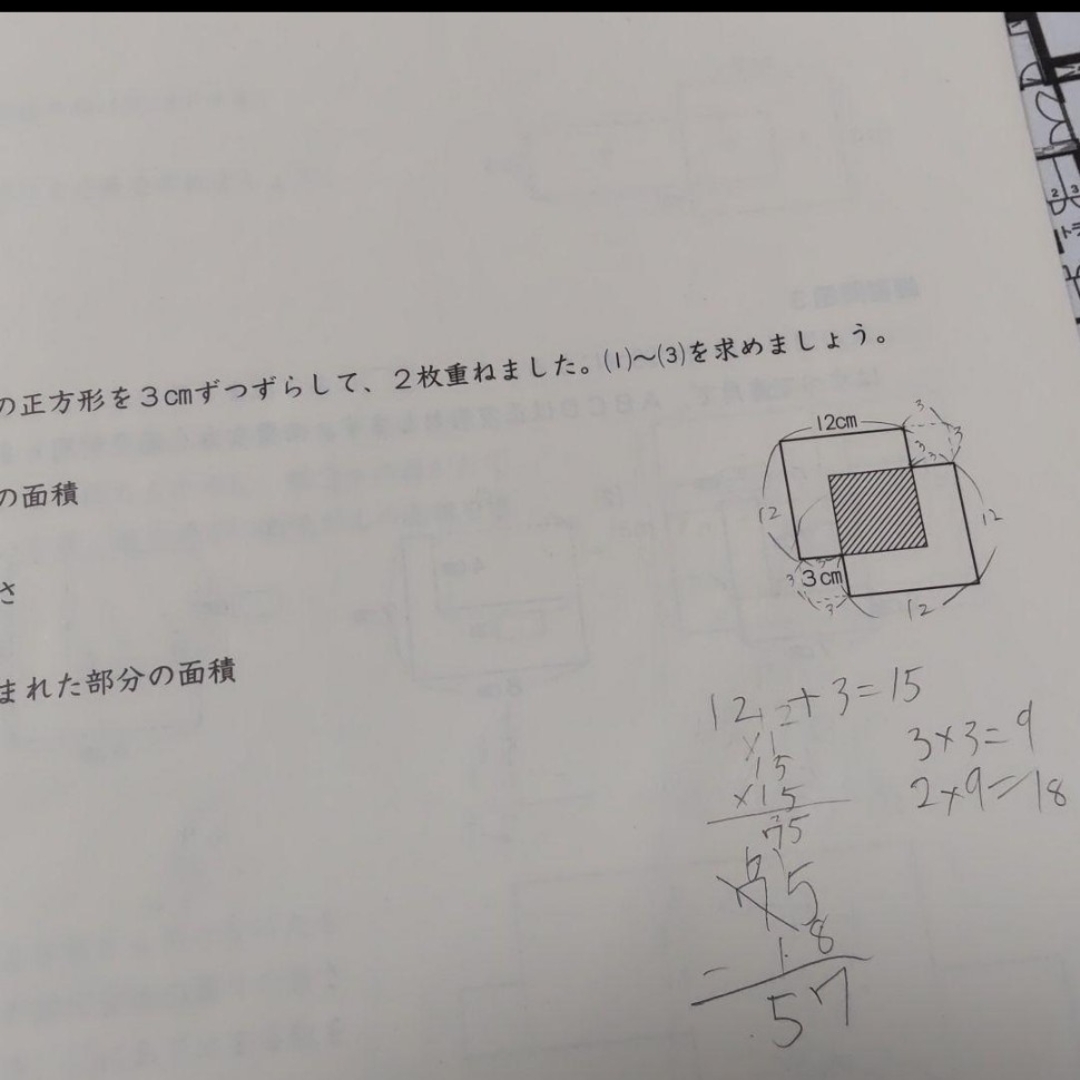 の正方形を3cmずつずらして、2枚重ねました。(1)〜(3)を求めましょう。
の面積
さ
まれた部分の面積
12cm
3
3
3
3
12
12
3
3cm
3
3
12
12+3=15
15
×15
75
3×3=9
2×9=18
75
-18
57